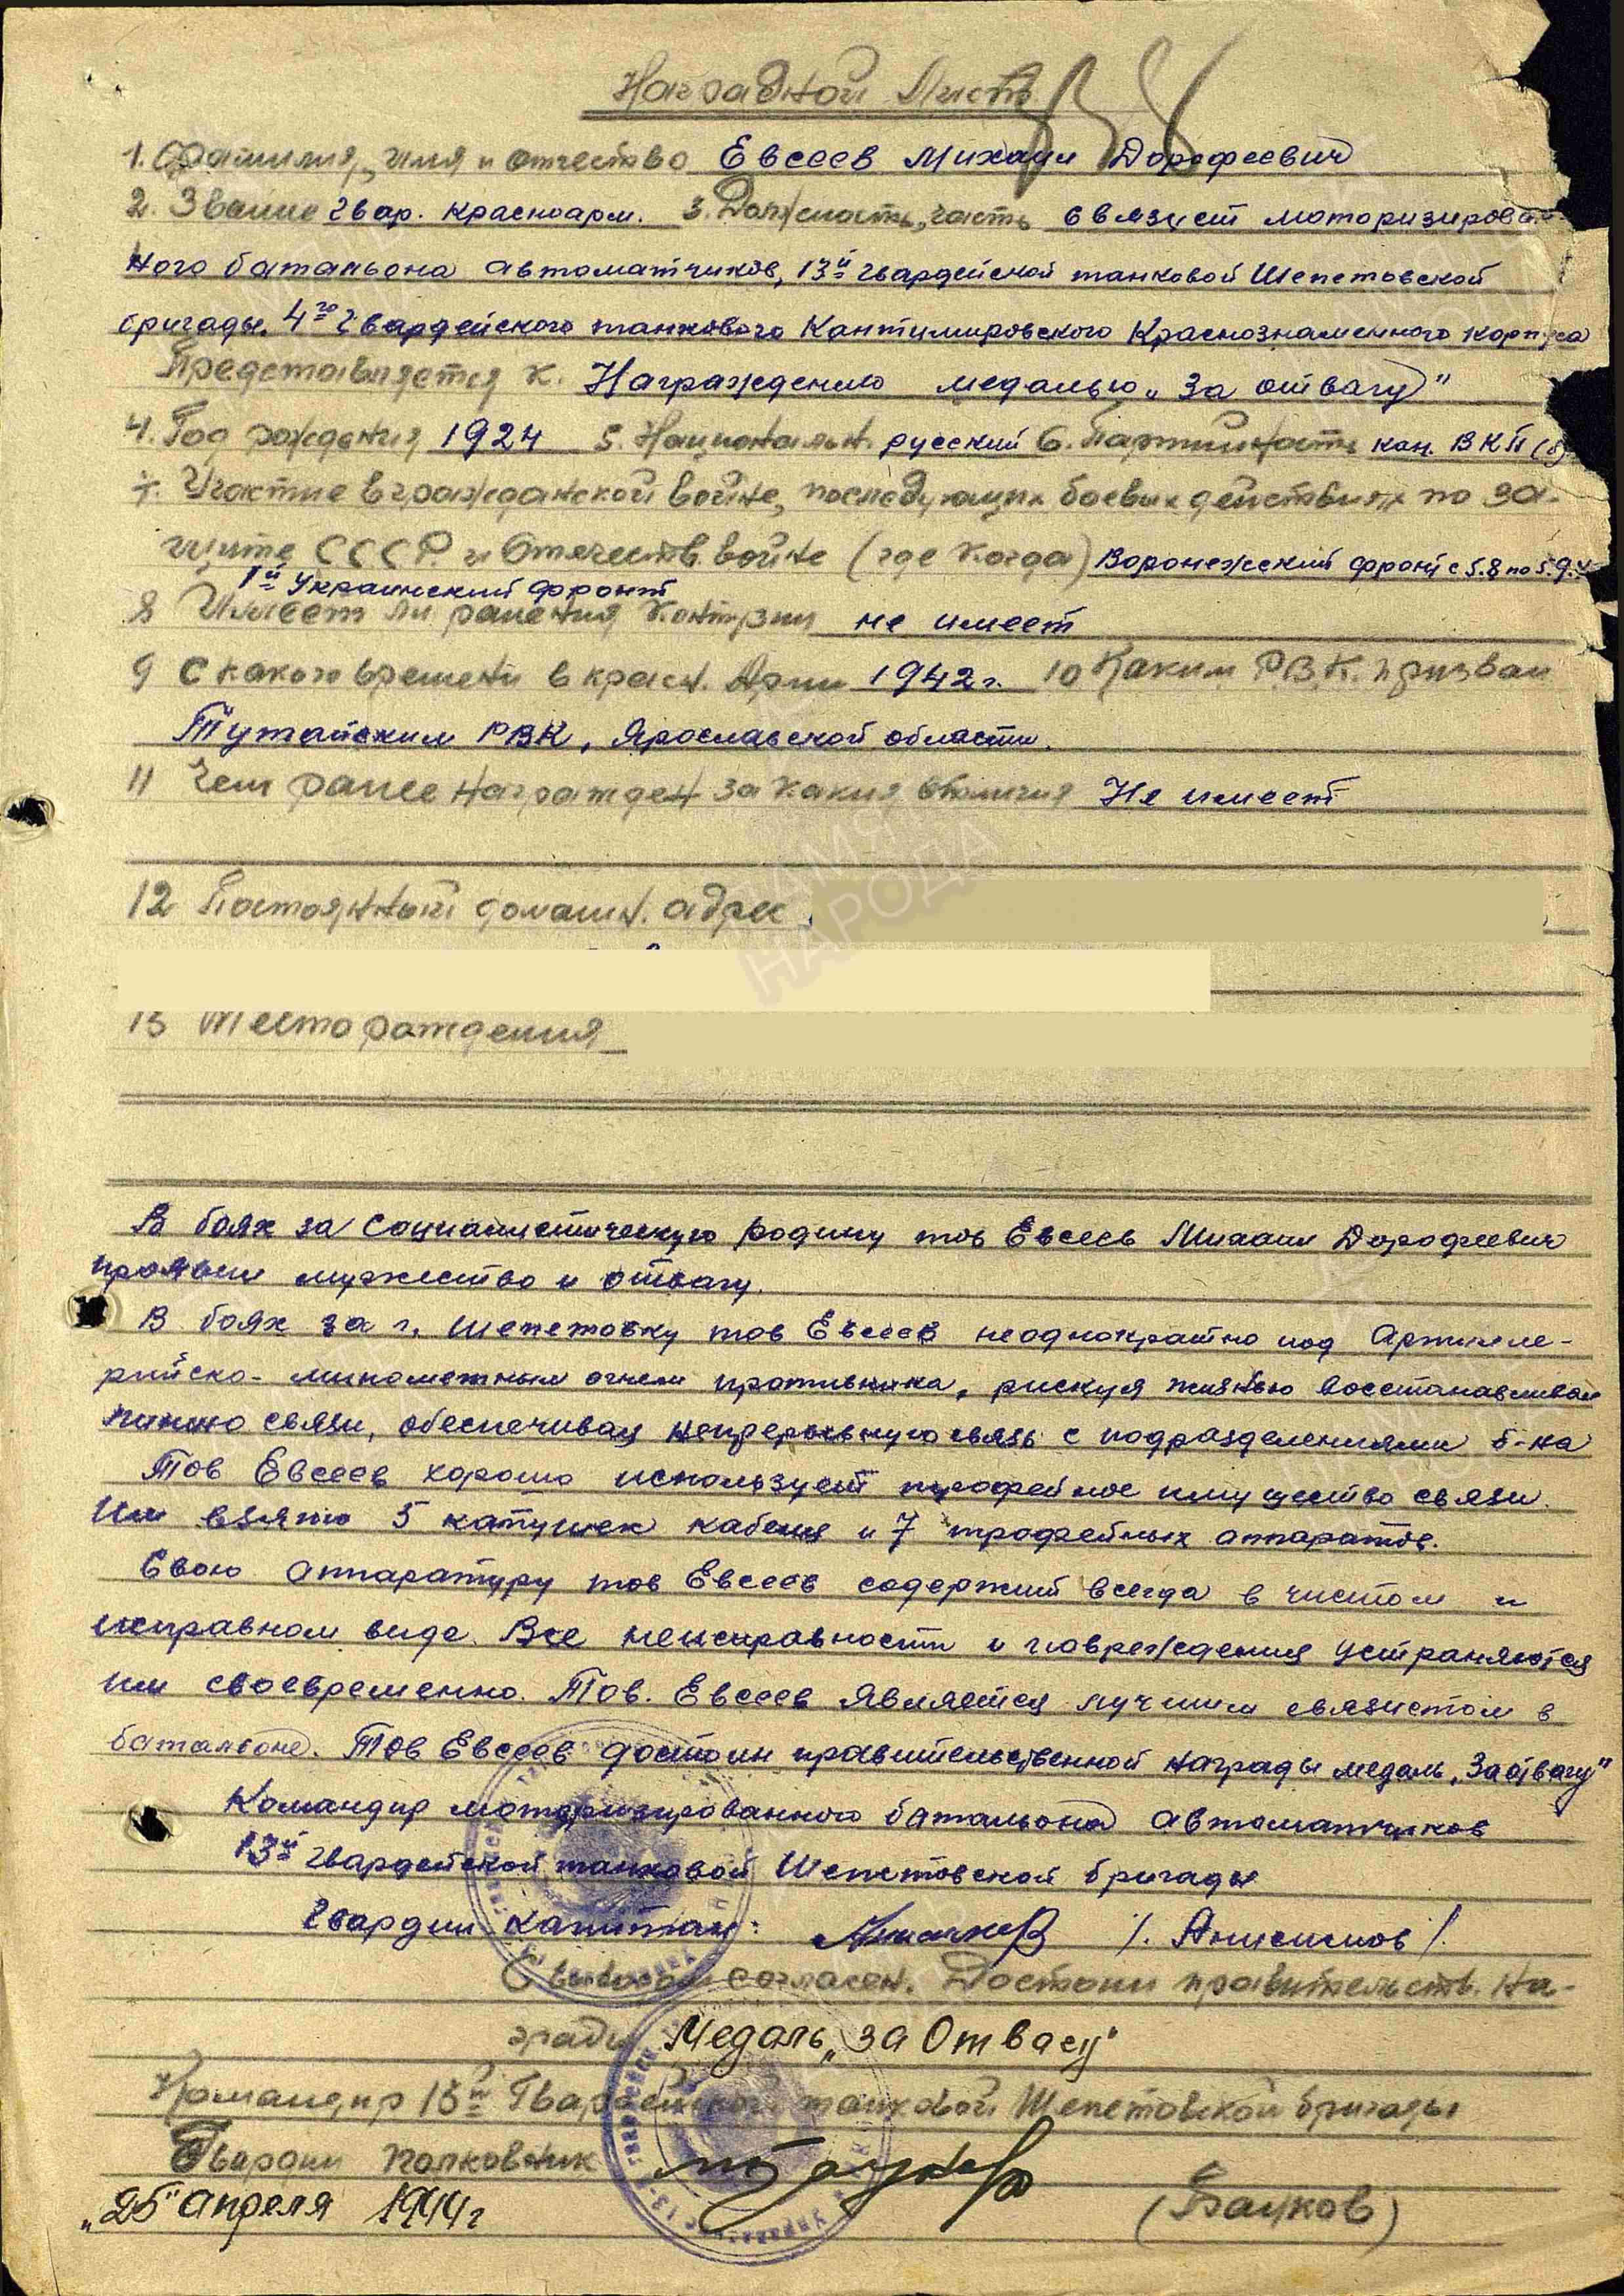 Наградной Лист
1. Фамилия, имя и отчество Евсеев Михаил Дорофеевич
2. Звание Гвар. красноарм. 3. Должность, часть связист моторизирован-
ного батальона автоматчиков, 13й гвардейской танковой Шепетовской
бригады, 4го Гвардейского танкового Кантимировского Краснознаменного корпуса
Представляется к. Награждению медалью „За отвагу"
4. Год рождения 1924 5. Национальн. русский 6. Партийность кан. ВКП(б)
7. Участие в гражданской войне, последующих боевых действиях по за-
щите СССР и Отечеств. войне (где когда) Воронежский фронт с 5.8 по 5.9.
1й Украинский фронт
8 Имеет ли ранения контузии не имеет
9 С какого времени в красн. Арми 1942 г. 10 Каким Р.В.К. призван
Тутайским РВК, Ярославской области.
11 Чем ранее награжден за какия отличия Не имеет
12 Постоянный домашн. адрес
13 Место рождения
ПАМЯТЬ
НАРОДА
В боях за Социалистическую родину тов Евсеев Михаил Дорофеевич
проявил мужество и отвагу.
В боях за г. Шепетовку тов Евсеев неоднократно под Артилле-
рийско-минометным огнем противника, рискуя жизнью восстанавливал
линию связи, обеспечивая непрерывную связь с подразделениями б-на
Тов Евсеев хорошо использует трофейное имущество связи.
Им взято 5 катушек кабеля и 7 трофейных аппаратов.
Свою аппаратуру тов Евсеев содержит всегда в чистом и
исправном виде. Все неисправности и повреждения устраняются
им своевременно. Тов. Евсеев является лучшим связистом в
батальоне. Тов Евсеев достоин правительственной награды медаль „За отвагу"
Командир моторизированного батальона автоматчиков
13й гвардейской танковой Шепетовской бригады
Гвардии капитан: /. Анисимов /.
С выводом согласен. Достоин правительств. на-
грады Медаль „За Отвагу"
Командир 13й Гвардейской танковой Шепетовской бригады
Гвардии полковник
(Бауков)
„25" апреля 1944 г